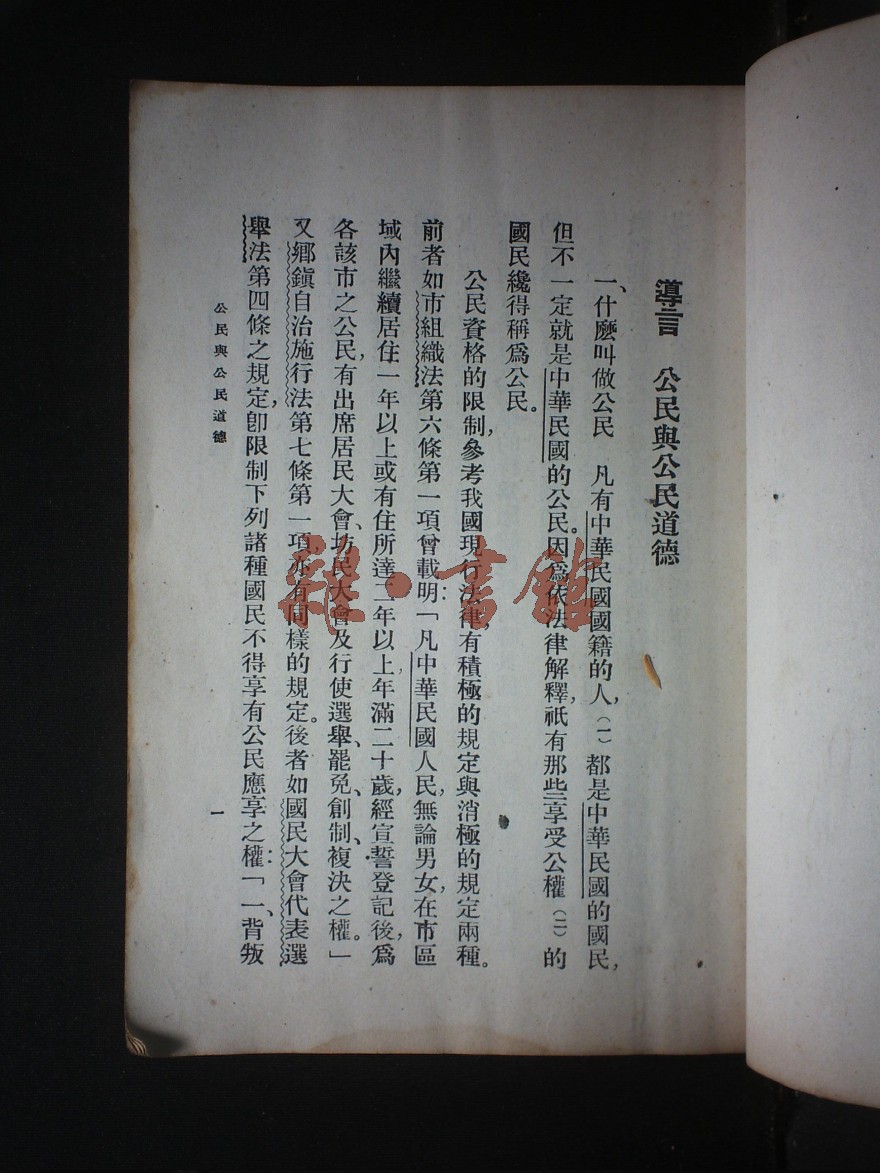 導言　公民與公民道德
一、什麼叫做公民　凡有中華民國國籍的人，（一）都是中華民國的國民，
但不一定就是中華民國的公民。因爲依法律解釋，祇有那些享受公權（二）的
國民纔得稱爲公民。
公民資格的限制，參考我國現行法律，有積極的規定與消極的規定兩種。
前者如市組織法第六條第一項曾載明：「凡中華民國人民，無論男女，在市區
域內繼續居住一年以上或有住所達二年以上年滿二十歲，經宣誓登記後，爲
各該市之公民，有出席居民大會、坊民大會及行使選舉、罷免、創制、複決之權。」
又鄉鎮自治施行法第七條第一項，亦有同樣的規定。後者如國民大會代表選
舉法第四條之規定，卽限制下列諸種國民不得享有公民應享之權：「一、背叛
公民與公民道德
一
雜·書館